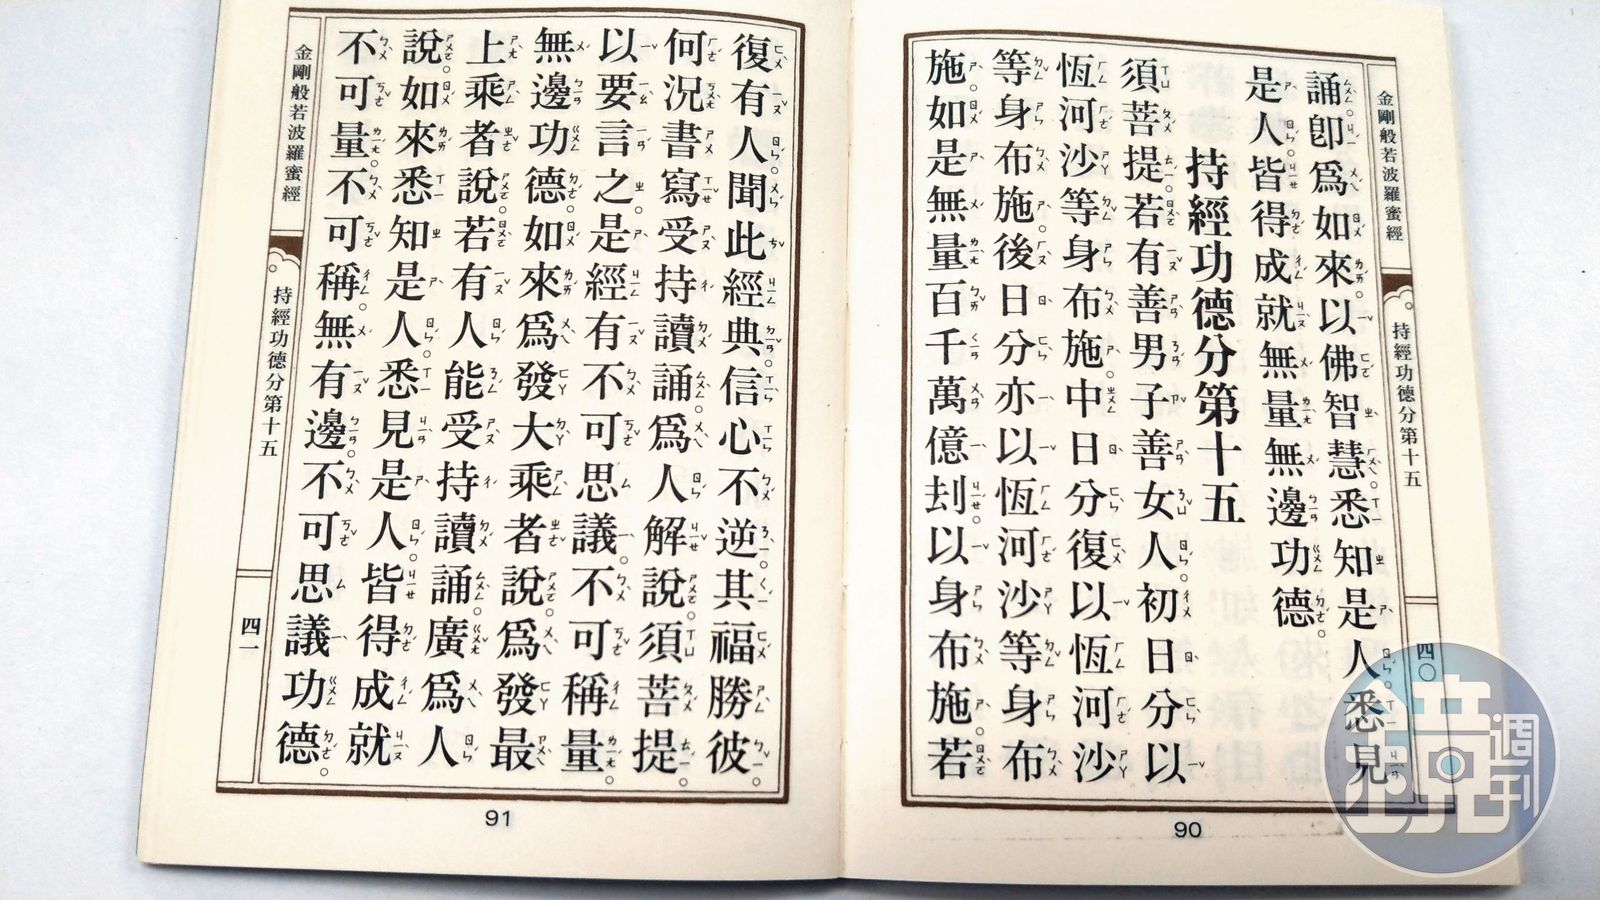 金剛般若波羅蜜經
持經功德分第十五
四〇
誦卽爲如來。以佛智慧。悉知是人。悉見
是人。皆得成就無量無邊功德。
持經功德分第十五
須菩提。若有善男子善女人。初日分以
恆河沙等身布施。中日分復以恆河沙
等身布施。後日分亦以恆河沙等身布
施。如是無量百千萬億刦。以身布施。若
90
復有人。聞此經典。信心不逆。其福勝彼。
何況書寫受持讀誦。爲人解說。須菩提。
以要言之。是經有不可思議。不可稱量。
無邊功德。如來爲發大乘者說。爲發最
上乘者說。若有人能受持讀誦。廣爲人
說。如來悉知是人。悉見是人。皆得成就
不可量。不可稱。無有邊。不可思議功德。
金剛般若波羅蜜經
持經功德分第十五
四一
91
鏡週刊